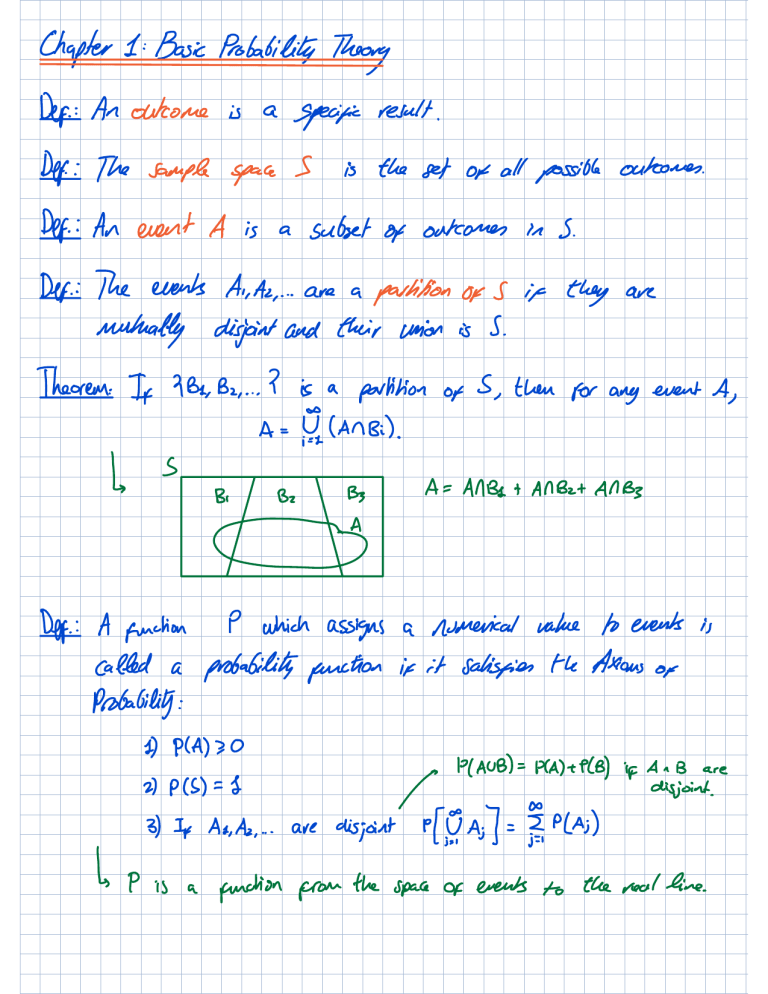 Chapter 1: Basic Probability Theory
Def.: An outcome is a specific result.
Def.: The sample space S is the set of all possible outcomes.
Def.: An event A is a subset of outcomes in S.
Def.: The events A₁, A₂, ... are a partition of S if they are
mutually disjoint and their union is S.
Theorem: If {B₁, B₂, ...} is a partition of S, then for any event A,
A = ⋃_{i=1}^{∞} (A∩Bi).
S
B₁ B₂ B₃ A = A∩B₁ + A∩B₂ + A∩B₃
A
Def.: A function P which assigns a numerical value to events is
called a probability function if it satisfies the Axioms of
Probability:
1) P(A) ⩾ 0
P(A∪B) = P(A) + P(B) if A ∧ B are
disjoint.
2) P(S) = 1
3) If A₁, A₂, ... are disjoint P[⋃_{j=1}^{∞} Aj] = ∑_{j=1}^{∞} P(Aj)
P is a function from the space of events to the real line.